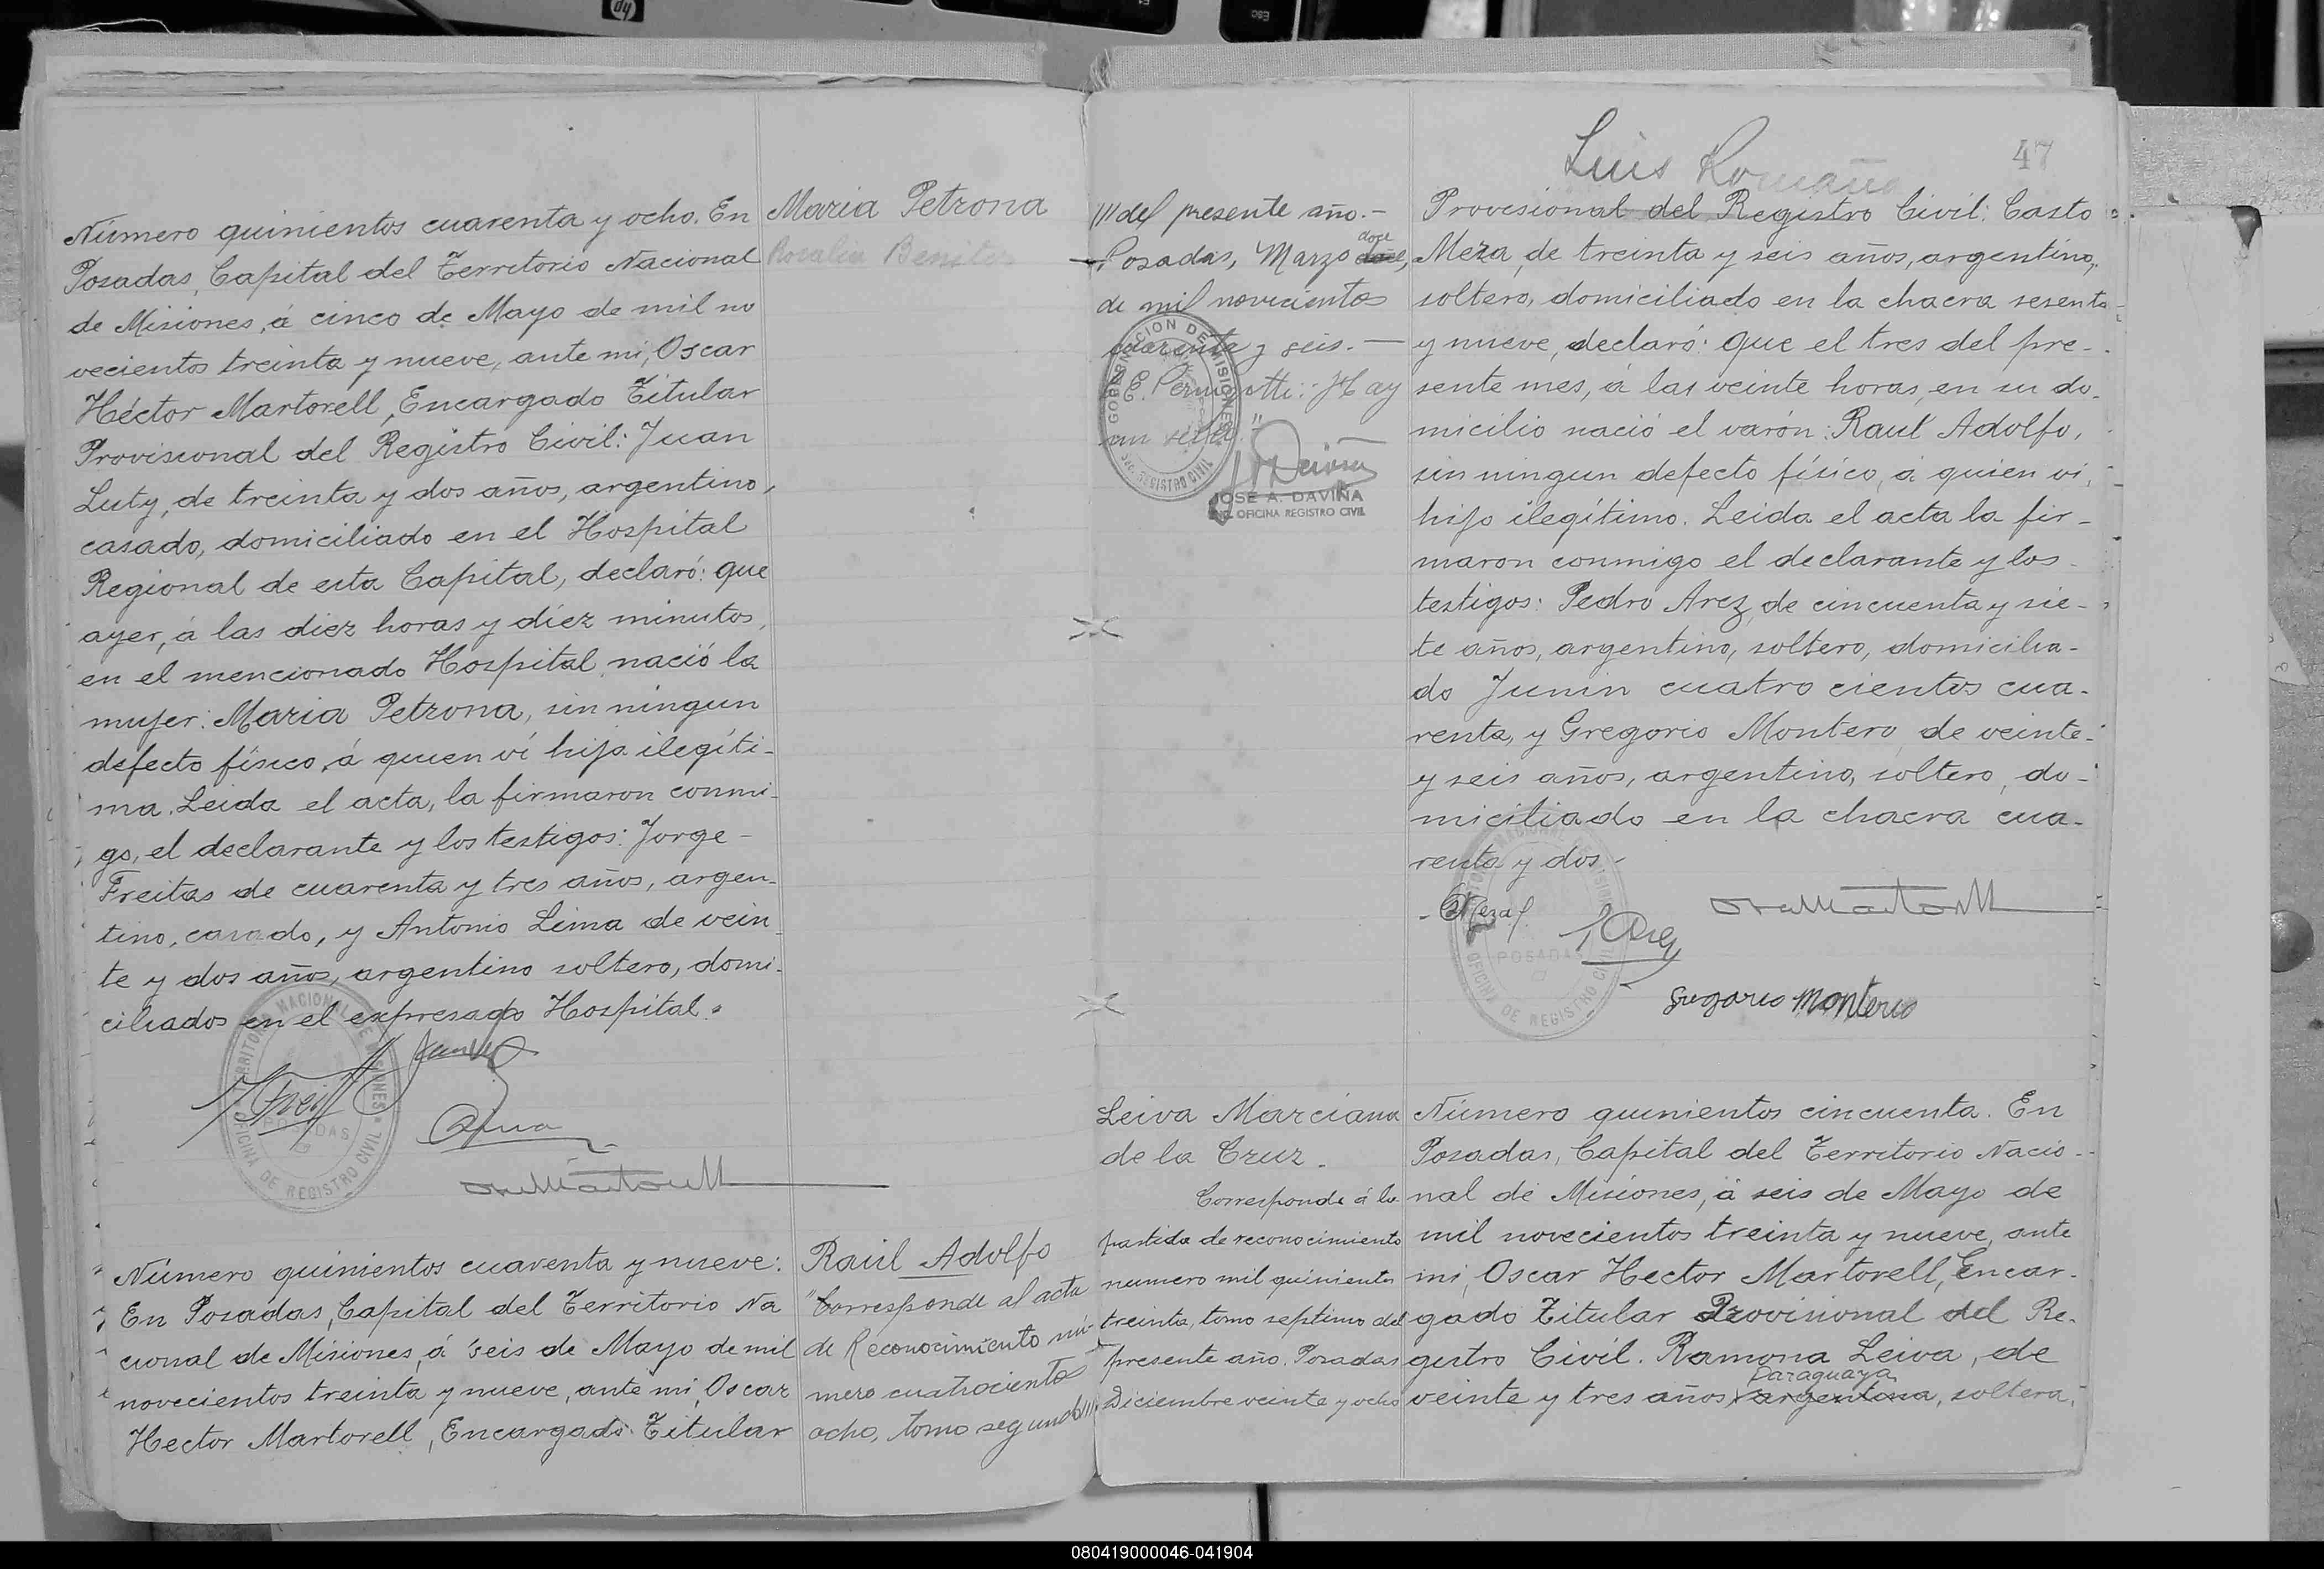 Número quinientos cuarenta y ocho. En
Posadas, Capital del Territorio Nacional
de Misiones, á cinco de Mayo de mil no
vecientos treinta y nueve, ante mi, Oscar
Héctor Martorell, Encargado Titular
Provisional del Registro Civil: Juan
Luty, de treinta y dos años, argentino,
casado, domiciliado en el Hospital
Regional de esta Capital, declaró: que
ayer, á las diez horas y diéz minutos,
en el mencionado Hospital nació la
mujer: Maria Petrona, sin ningun
defecto físico, á quien ví hija ilegíti-
ma. Leida el acta, la firmaron conmi-
go, el declarante y los testigos: Jorge
Freitas de cuarenta y tres años, argen-
tino, casado, y Antonio Lima de vein
te y dos años, argentino soltero, domi-
ciliados en el expresado Hospital.
TERRITORIO NACIONAL DE MISIONES
POSADAS
OFICINA DE REGISTRO CIVIL
Maria Petrona
Rosalia Benitez
Número quinientos cuarenta y nueve:
En Posadas, Capital del Territorio Na
cional de Misiones, á seis de Mayo de mil
novecientos treinta y nueve, ante mi, Oscar
Hector Martorell, Encargado Titular
Raúl Adolfo
"Corresponde al acta
de Reconocimiento nú-
mero cuatrocientos
ocho, tomo segundo///
///del presente año.-
Posadas, Marzo doce
de mil novecientos
cuarenta y seis.-
Hay
un sello."
GOBERNACION DE MISIONES
REGISTRO CIVIL
JOSE A. DAVIÑA
ENC. OFICINA REGISTRO CIVIL
Luis Romaña
47
Provisional del Registro Civil: Casto
Meza, de treinta y seis años, argentino,
soltero, domiciliado en la chacra sesenta
y nueve, declaró: que el tres del pre-
sente mes, á las veinte horas, en su do-
micilio nació el varón: Raul Adolfo,
sin ningun defecto físico, á quien ví,
hijo ilegítimo. Leida el acta la fir-
maron conmigo el declarante y los
testigos: Pedro Arez, de cincuenta y sie-
te años, argentino, soltero, domicilia-
do Junin cuatro cientos cua-
renta, y Gregorio Montero de veinte
y seis años, argentino, soltero, do-
miciliado en la chacra cua-
renta y dos.
C Meza
POSADAS
OFICINA DE REGISTRO CIVIL
Gregorio Montero
Leiva Marciana
de la Cruz.
Corresponde á la
partida de reconocimiento
numero mil quinientos
treinta, tomo septimo del
presente año. Posadas
Diciembre veinte y ocho
Número quinientos cincuenta. En
Posadas, Capital del Territorio Nacio-
nal de Misiones, á seis de Mayo de
mil novecientos treinta y nueve, ante
mi, Oscar Hector Martorell, Encar-
gado Titular Provisional del Re-
gistro Civil. Ramona Leiva, de
Paraguaya
veinte y tres años, argentina, soltera,
080419000046-041904